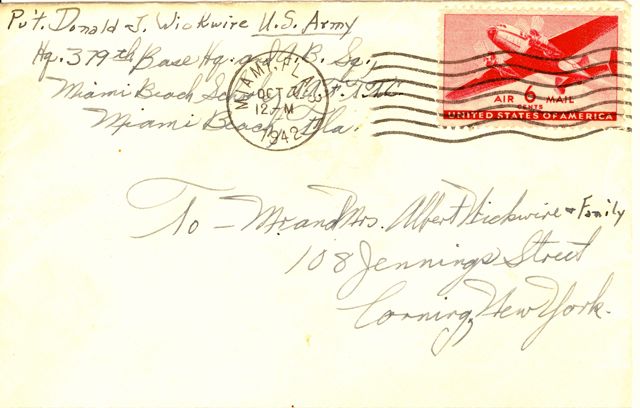 Pvt. Donald J. Wickwire U.S. Army
Hq. 379th Base Hq. and A.B. Sq.,
Miami Beach
Miami Beach, Fla.
MIAMI, FLA.
OCT
12-M
1942
AIR 6 MAIL
CENTS
UNITED STATES OF AMERICA
To - Mr. and Mrs. Albert Wickwire + Family
108 Jennings Street
Corning, New York.